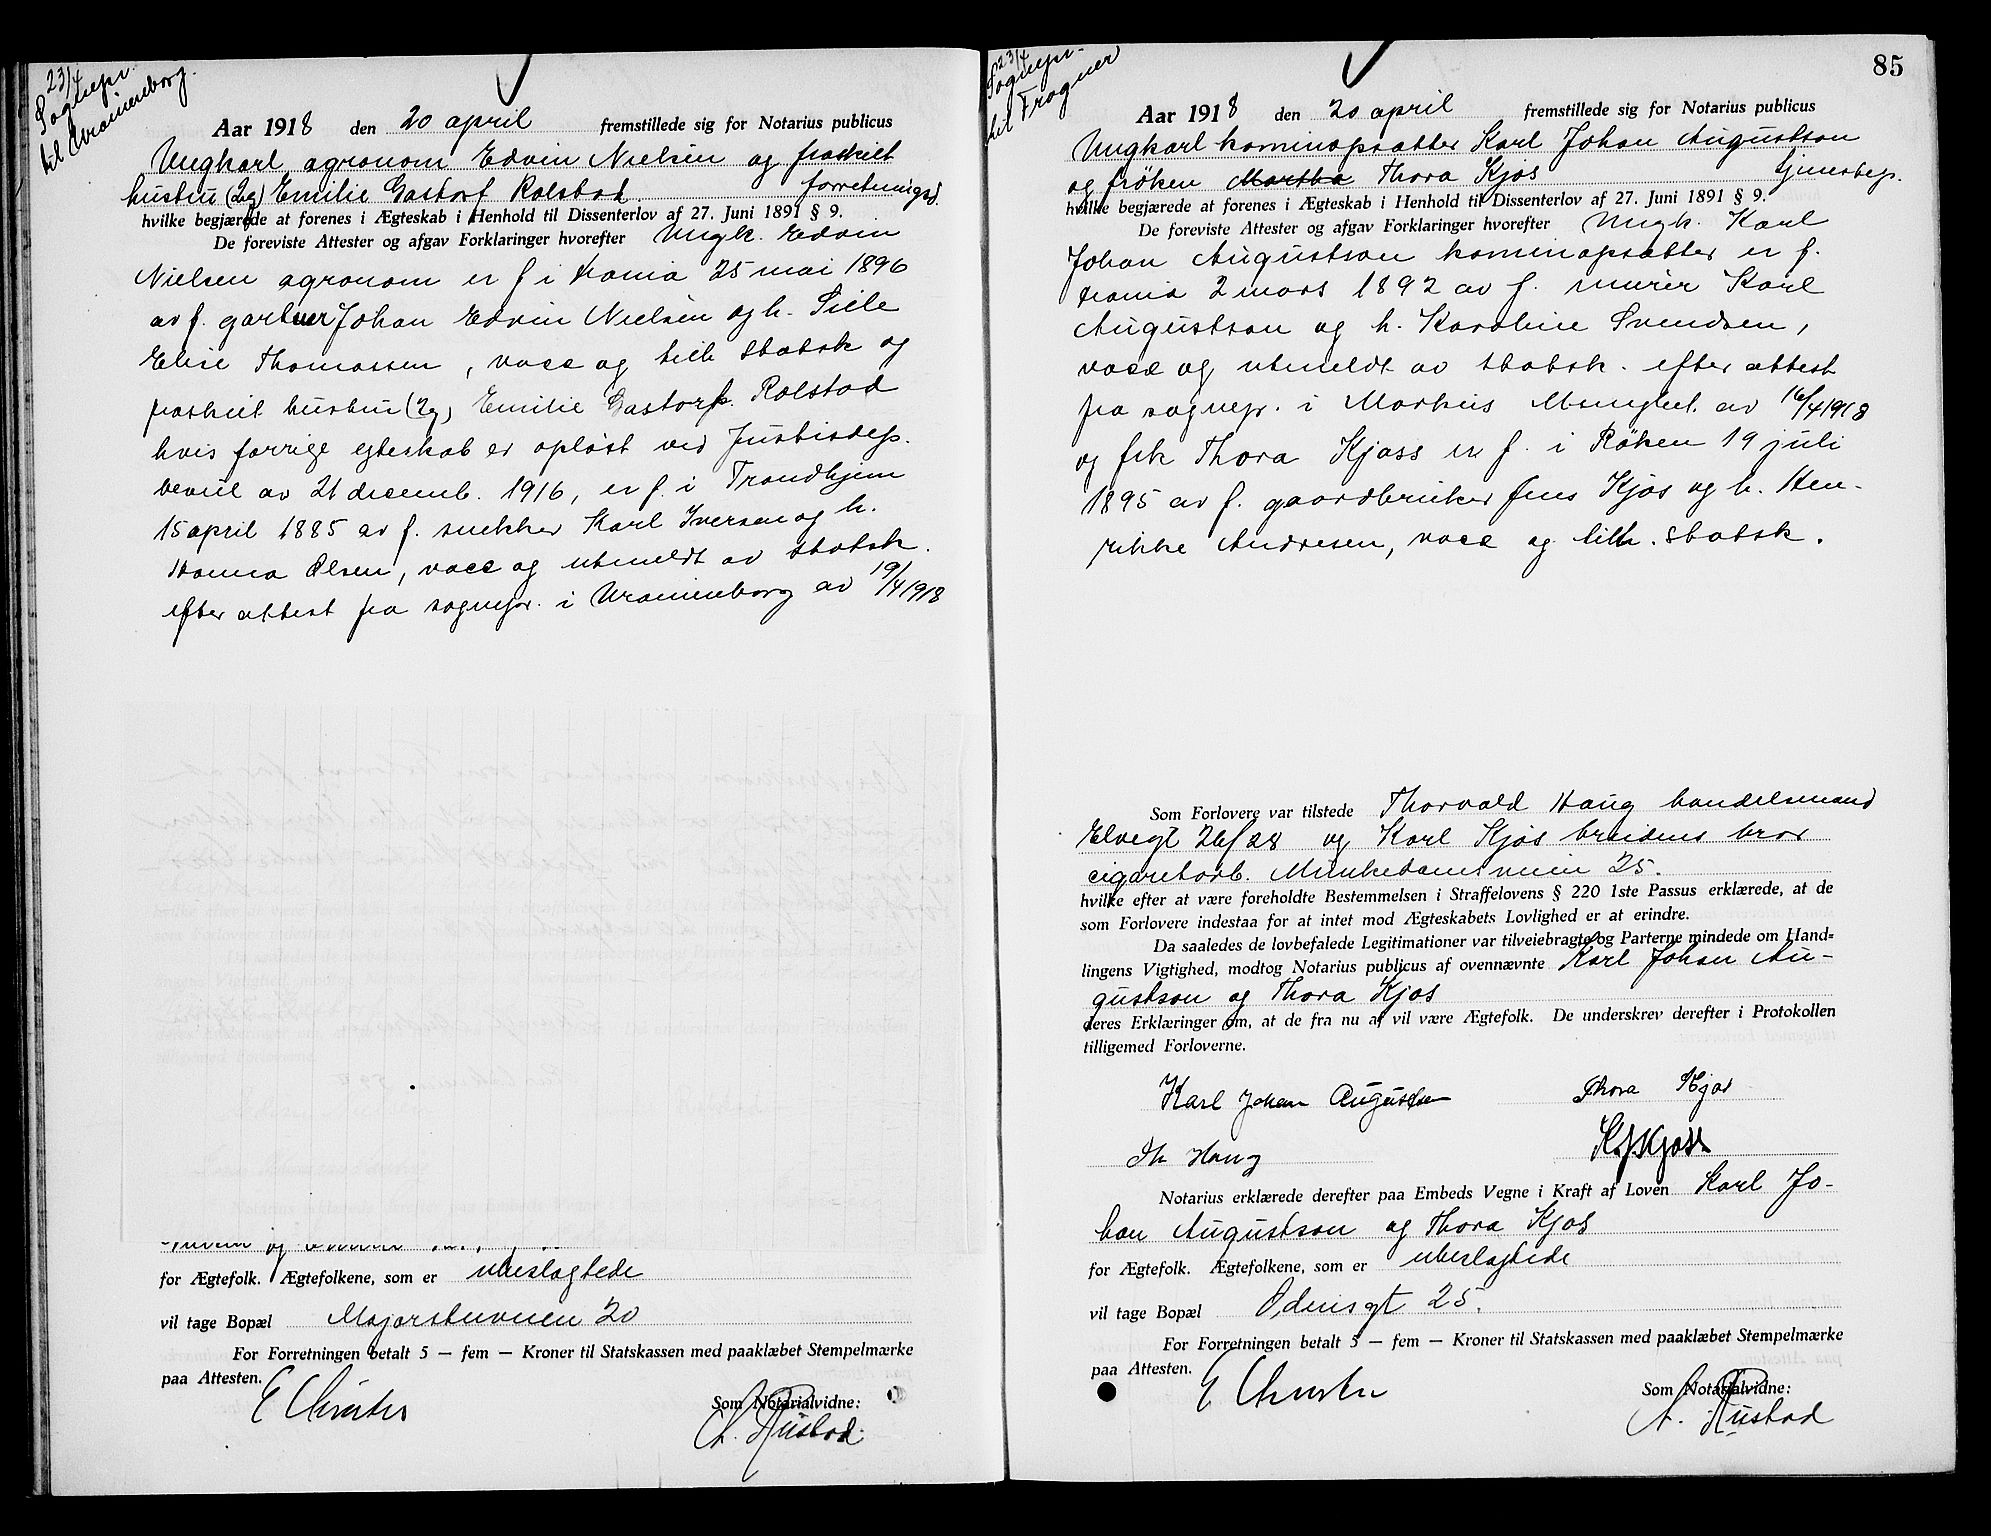 23/4
Sognepr.
til Uranienborg.
Aar 1918 den 20 april fremstillede sig for Notarius publicus
Ungkarl agronom Edvin Nielsen og fraskilt
hustru (2g) Emilie Gastorf Rolstad. forretningsd.
hvilke begjærede at forenes i Ægteskab i Henhold til Dissenterlov af 27. Juni 1891 § 9.
De foreviste Attester og afgav Forklaringer hvorefter Ungk. Edvin
Nielsen agronom er f i Krania 25 mai 1896
av f. gartner Johan Edvin Nielsen og h. Sille
Elise Thomassen, vacc og tilh statsk og
fraskilt hustru (2g) Emilie Gastorf. Rolstad
hvis forrige egteskab er opløst ved Justisdep.
bevil av 21 decemb. 1916, er f. i Trondhjem
15 april 1885 av f. snekker Karl Iversen og h.
Hanna Olsen, vacc og utmeldt av statsk.
efter attest fra sognepr. i Uranienborg av 19/4 1918
for Ægtefolk. Ægtefolkene, som er ubeslægtede
vil tage Bopæl Majorstuveien 20
For Forretningen betalt 5 — fem — Kroner til Statskassen med paaklæbet Stempelmærke
paa Attesten.
Som Notarialvidne:
A. Rustad.
85
23/4
Sognepr.
til Frogner
Aar 1918 den 20 april fremstillede sig for Notarius publicus
Ungkarl kaminopsætter Karl Johan Augustson
og frøken Martha Thora Kjøs
hvilke begjærede at forenes i Ægteskab i Henhold til Dissenterlov af 27. Juni 1891 § 9.
De foreviste Attester og afgav Forklaringer hvorefter Ungk. Karl
Johan Augustson kaminopsætter er f.
Krania 2 mars 1892 av f. murer Karl
Augustson og h. Karoline Svendsen,
vacc og utmeldt av statsk. efter attest
fra sognepr. i Markus Menighet. av 16/4 1918
og frk Thora Kjøss er f. i Røken 19 juli
1895 av f. gaardbruker Jens Kjøs og h. Hen-
rikke Andresen, vacc og tilh. statsk.
Som Forlovere var tilstede Thorvald Haug handelsmand
Elvegt 26/28 og Karl Kjøs brudens bror
cigaretarb. Munkedamsveien 25.
hvilke efter at være foreholdte Bestemmelsen i Straffelovens § 220 1ste Passus erklærede, at de
som Forlovere indestaa for at intet mod Ægteskabets Lovlighed er at erindre.
Da saaledes de lovbefalede Legitimationer var tilveiebragte og Parterne mindede om Hand-
lingens Vigtighed, modtog Notarius publicus af ovennævnte Karl Johan Au-
gustson og Thora Kjøs
deres Erklæringer om, at de fra nu af vil være Ægtefolk. De underskrev derefter i Protokollen
tilligemed Forloverne.
Karl Johan Augustson Thora Kjøs
Th Haug K. Kjøss
Notarius erklærede derefter paa Embeds Vegne i Kraft af Loven Karl Jo-
han Augustson og Thora Kjøs
for Ægtefolk. Ægtefolkene, som er ubeslægtede
vil tage Bopæl Odinsgt 25.
For Forretningen betalt 5 — fem — Kroner til Statskassen med paaklæbet Stempelmærke
paa Attesten.
Som Notarialvidne:
A. Rustad